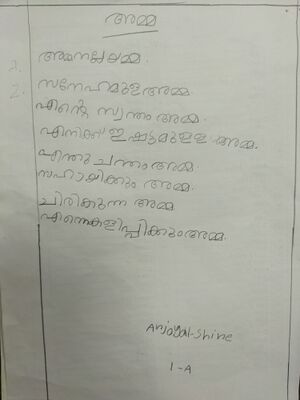 അമ്മ
1. അമ്മനല്ലയമ്മ.
2. സനേഹമുളഅമ്മ.
എന്റെ സ്വന്തം അമ്മ.
എനിക്ക് ഇഷ്ടമുളള അമ്മ.
എന്തു ചന്തം അമ്മ
സഹായിക്കും അമ്മ.
ചിരിക്കുന്ന അമ്മ
എന്നെകളിപ്പിക്കുംഅമ്മ.
Shine
1-A